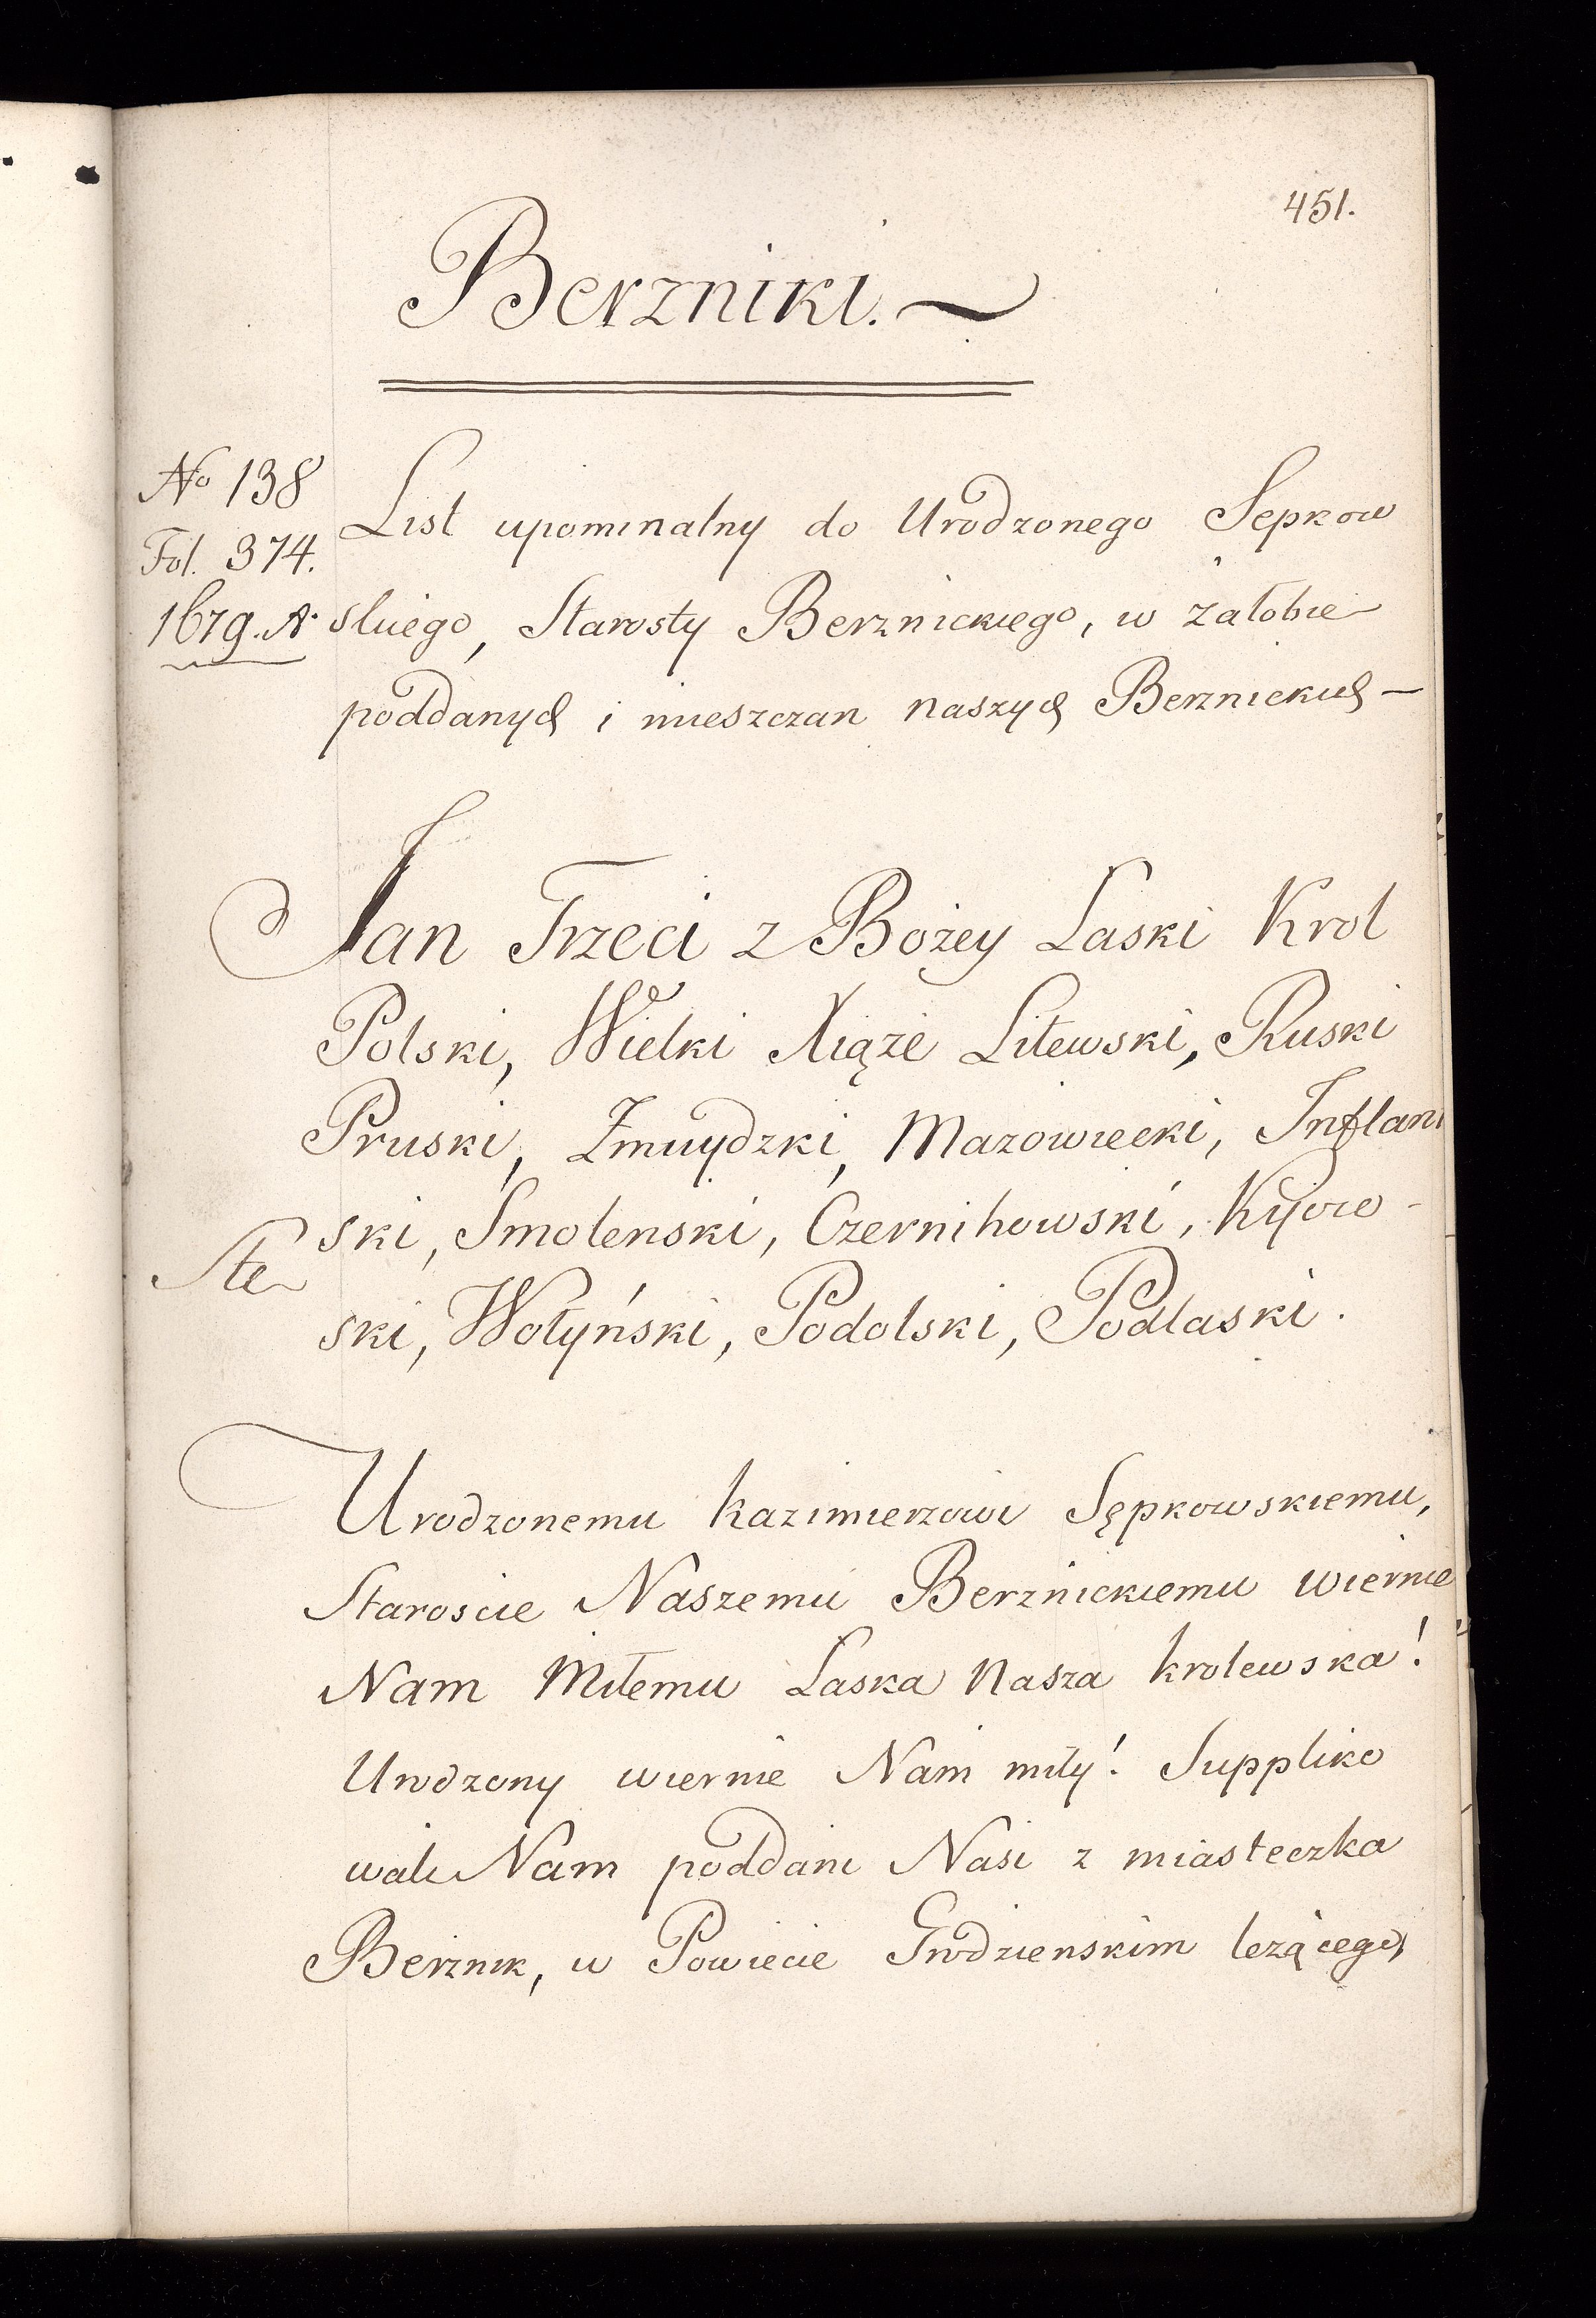 451.
Berzniki.
No 138
Fol. 374.
1679. A.
List upominalny do Urodzonego Sepkow
skiego, Starosty Berznickiego, w załobie
poddanych i mieszczan naszych Berznickich
Jan Trzeci z Bożey Laski Krol
Polski, Wielki Xiąże Litewski, Ruski
Pruski, Zmuydzki, Mazowiecki, Inflan
ski, Smolenski, Czernihowski, Kijow
ski, Wołyński, Podolski, Podlaski.
Urodzonemu Kazimierzowi Sępkowskiemu,
Staroscie Naszemu Berznickiemu wiernie
Nam Miłemu Laska Nasza krolewska!
Urodzony wiernie Nam miły! Suppliko
wali Nam poddani Nasi z miasteczka
Berznik, w Powiecie Grodzienskim leżącego,